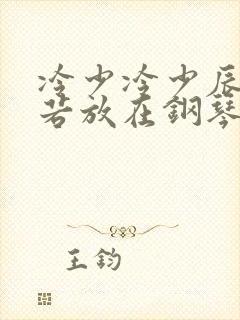 冷少冷少辰
若放在鋼琴
王鈞